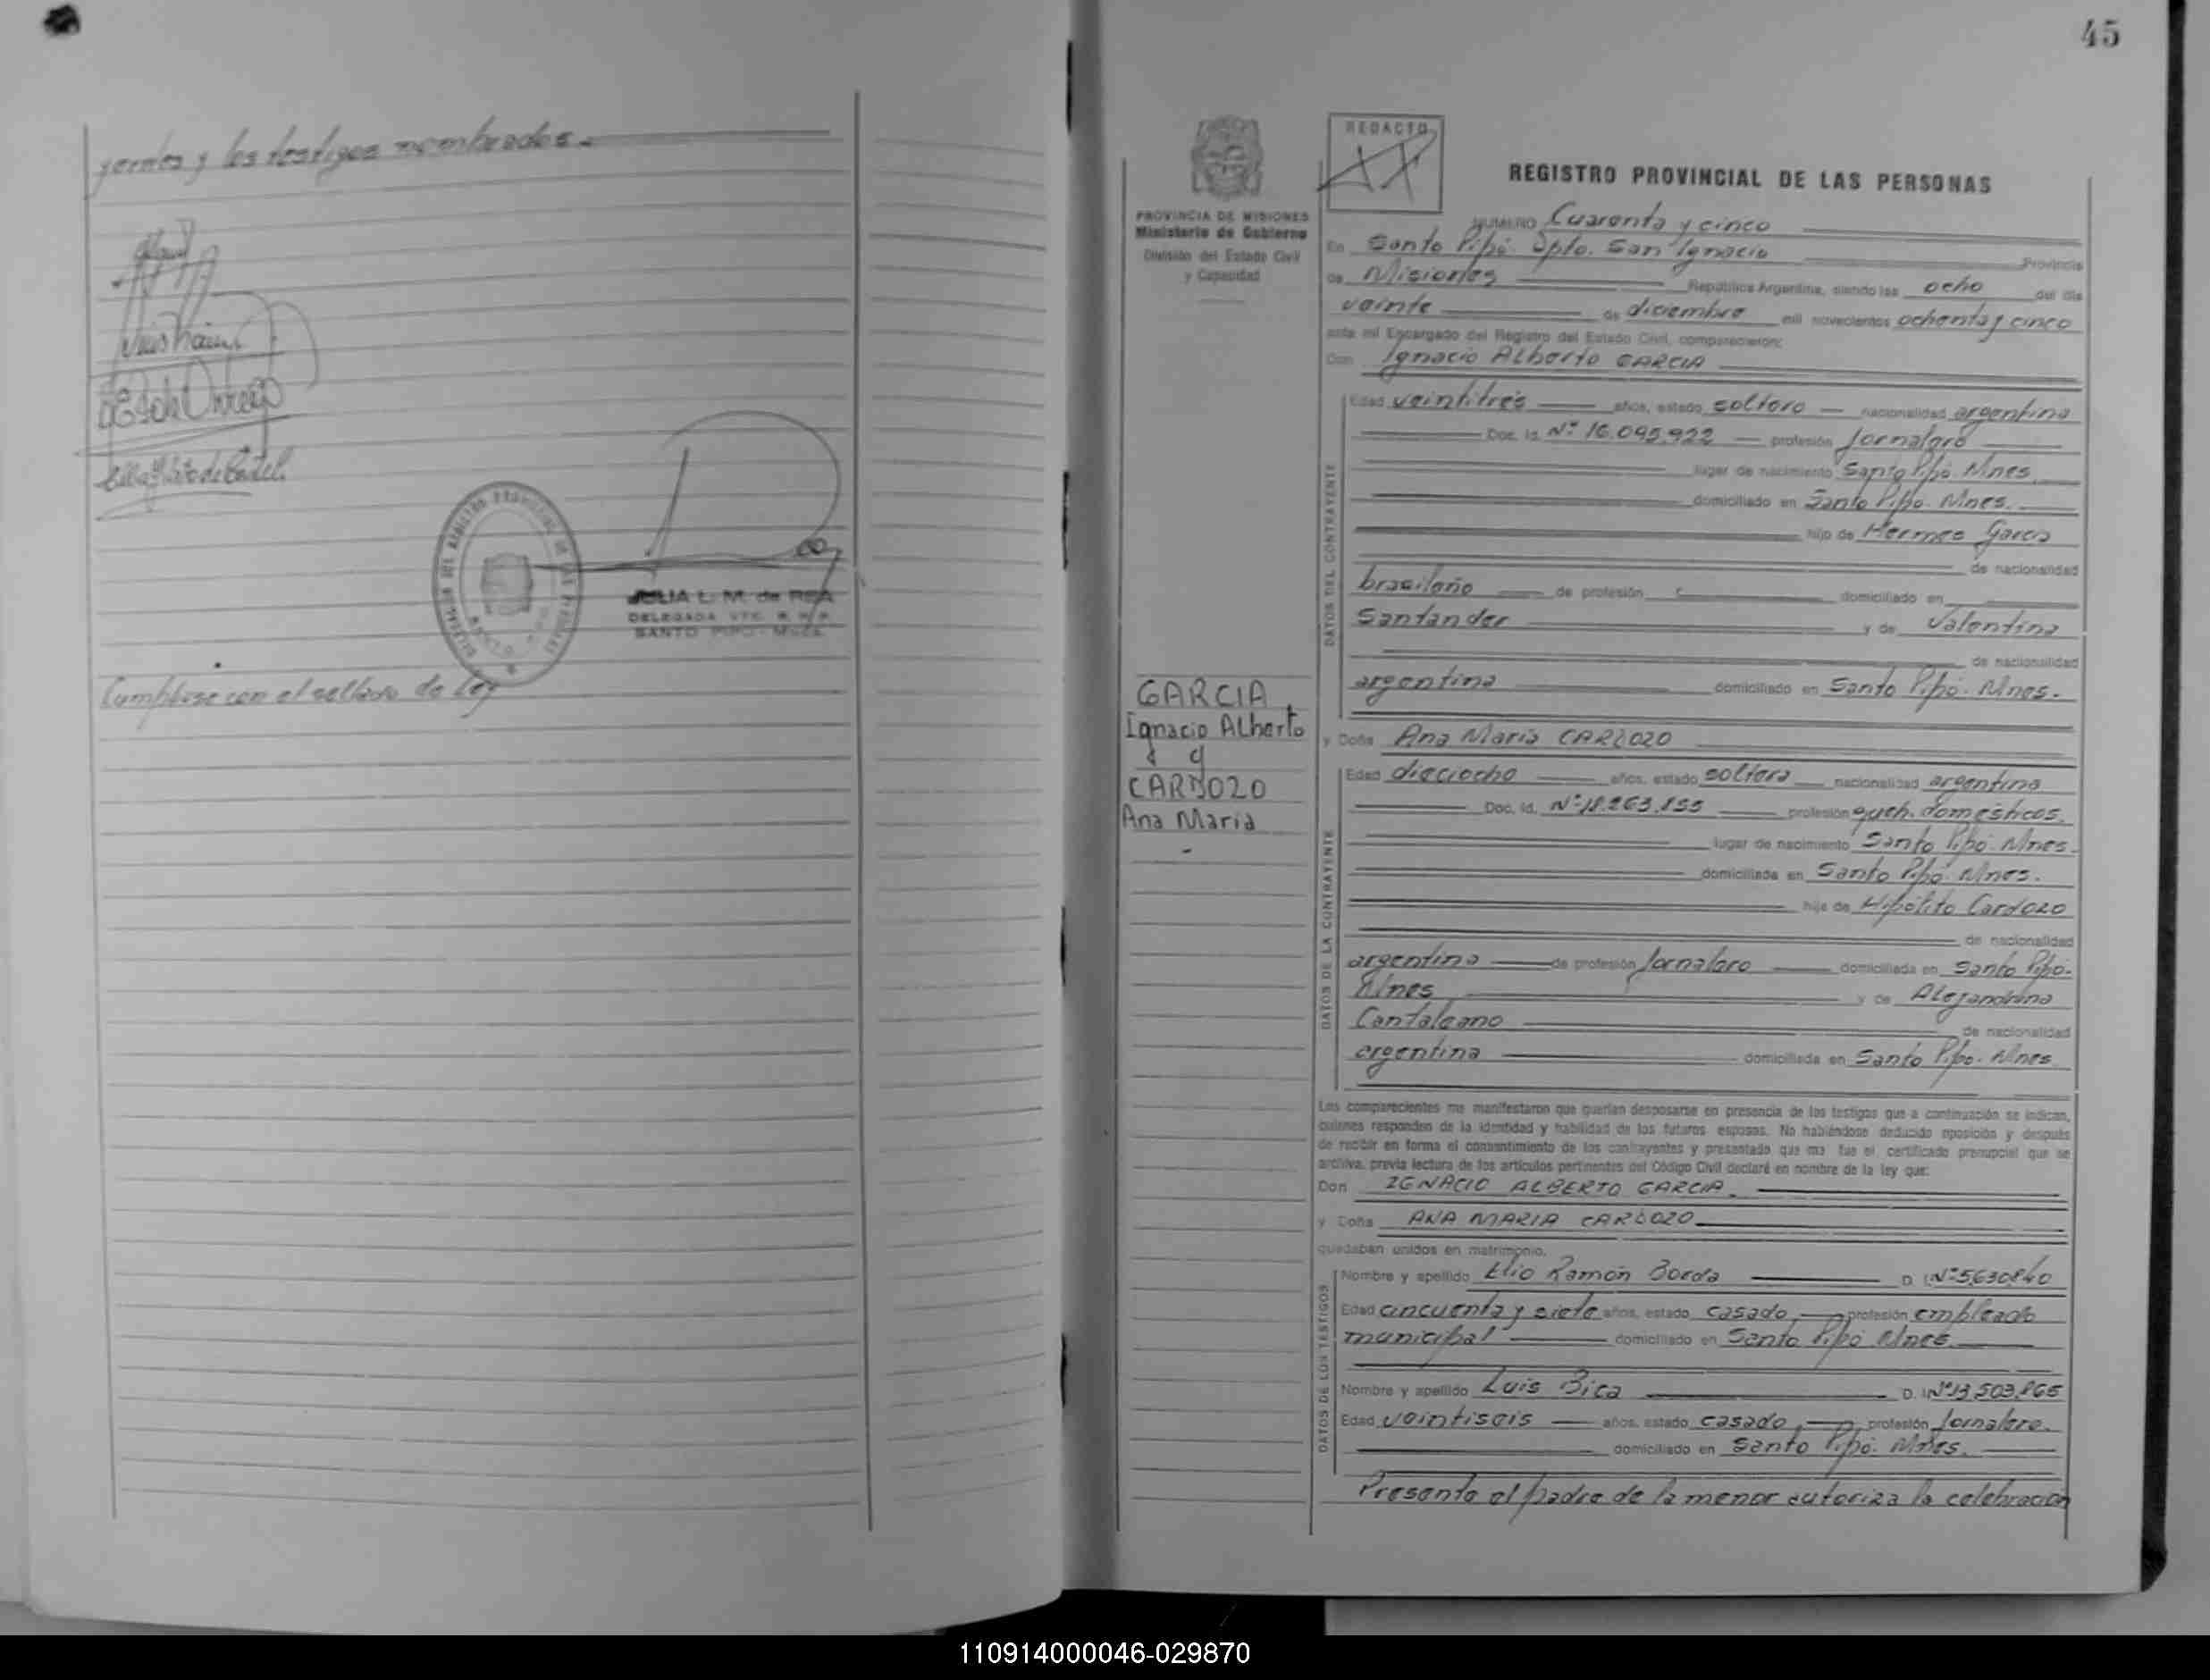 yentes y los testigos nombrados.-
Cumplase con el sellado de Ley
JULIA L. M. de REA
DELEGADA
SANTO PIPO - MNES.
45
PROVINCIA DE MISIONES
Ministerio de Gobierno
División del Estado Civil
y Capacidad
REDACTO
REGISTRO PROVINCIAL DE LAS PERSONAS
NUMERO Cuarenta y cinco
En Santo Pipó. Dpto. San Ignacio Provincia
de Misiones República Argentina, siendo las ocho del día
veinte de diciembre mil novecientos ochenta y cinco
ante mí Encargado del Registro del Estado Civil, comparecieron:
Don Ignacio Alberto GARCIA
DATOS DEL CONTRAYENTE
Edad veintitrés años, estado soltero nacionalidad argentina
Doc. Id. Nº 16.095.922 profesión Jornalero
lugar de nacimiento Santo Pipó. Mnes.
domiciliado en Santo Pipó. Mnes.
hijo de Hermes Garcia
de nacionalidad
brasileño de profesión domiciliado en
Santander y de Valentina
de nacionalidad
argentina domiciliado en Santo Pipó. Mnes.
GARCIA,
Ignacio Alberto
y
CARDOZO
Ana Maria
-
y Doña Ana Maria CARDOZO
DATOS DE LA CONTRAYENTE
Edad dieciocho años, estado soltera nacionalidad argentina
Doc. Id. Nº 18.263.855 profesión queh. domésticos.
lugar de nacimiento Santo Pipó. Mnes.
domiciliada en Santo Pipó. Mnes.
hija de Hipólito Cardozo
de nacionalidad
argentino de profesión Jornalero domiciliada en Santo Pipó.
Mnes y de Alejandrina
Cantaleano de nacionalidad
argentina domiciliada en Santo Pipó. Mnes
Los comparecientes me manifestaron que querían desposarse en presencia de los testigos que a continuación se indican,
quienes responden de la identidad y habilidad de los futuros esposos. No habiéndose deducido oposición y después
de recibir en forma el consentimiento de los contrayentes y presentado que me fue el certificado prenupcial que se
archiva, previa lectura de los artículos pertinentes del Código Civil declaré en nombre de la ley que:
Don IGNACIO ALBERTO GARCIA.
y Doña ANA MARIA CARDOZO
quedaban unidos en matrimonio.
DATOS DE LOS TESTIGOS
Nombre y apellido Elio Ramón Borda D. I. Nº 5.630.840
Edad cincuenta y siete años, estado casado, profesión empleado
municipal domiciliado en Santo Pipó Mnes.
Nombre y apellido Luis Bica D. I. Nº 13.503.865
Edad veintiseis años, estado casado, profesión Jornalero.
domiciliado en Santo Pipó. Mnes.
Presente el padre de la menor autoriza la celebración
110914000046-029870